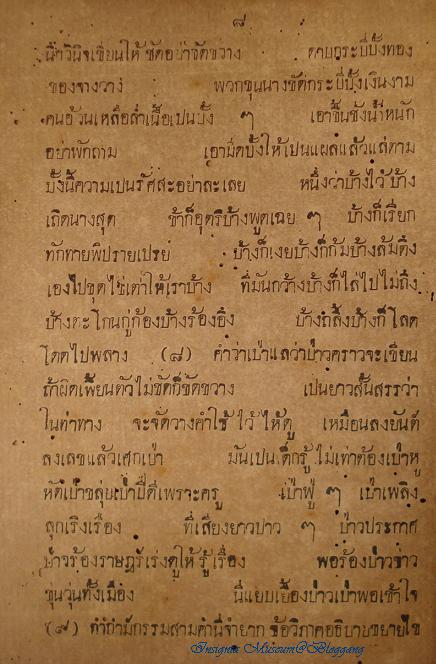 ๘
นี้าวินิจเขียนให้ชัดอย่าขัดขวาง ดาบกระบี่บั้งทอง
ของจางวาง พวกขุนนางขัดกระบี่บั้งเงินงาม
คนอ้วนเหลือล่ำเนื้อเปนบั้ง ๆ เอาขึ้นชั่งน้ำหนัก
อย่าพักถาม เอามีดบั้งให้เปนแผลแล้วแล่ตาม
บั้งนี้ความเปนรัศสะอย่าละเลย หนึ่งว่าบ้างไว้บ้าง
เถิดนางสุด ข้าก็อุตริบ้างพูดเฉย ๆ บ้างก็เรียก
ทักทายพิปรายเปรย บ้างก็เงยบ้างก็ก้มบ้างล้มตึง
เองไปขุดไข่เต่าให้เราบ้าง ที่มันกว้างบ้างก็ไล่ไปไม่ถึง
บ้างตะโกนกู่ก้องบ้างร้องอึง บ้างถลึงบ้างก็โลด
โดดไปพลาง (๘) คำว่าเป่าแลว่าบ่าวคราวจะเขียน
ถ้าผิดเพี้ยนตัวไม่ชัดก็ขัดขวาง เปนยาวสั้นสรรว่า
ในท่าทาง จะจัดวางคำใช้ไว้ให้ดู เหมือนลงยันต์
ลงเลขแล้วเศกเป่า มันเปนเด็กรู้ไม่เท่าต้องเป่าหู
หัดเป่าขลุ่ยเป่าปี่ดีเพราะครู เป่าฟู่ ๆ เป่าเพลิง
ลุกเริงเรือง ที่เสียงยาวบ่าว ๆ บ่าวประกาศ
ป่าวร้องราษฎร์เร่งดูให้รู้เรื่อง พอร้องป่าวข่าว
วุ่นทั้งเมือง นี่แยบเยื้องป่าวเป่าพอเข้าใจ
(๙) กรรมสามคำนี้จำยาก ข้อวิภาคอธิบายขยายไข
Insignia Museum@Bloggang